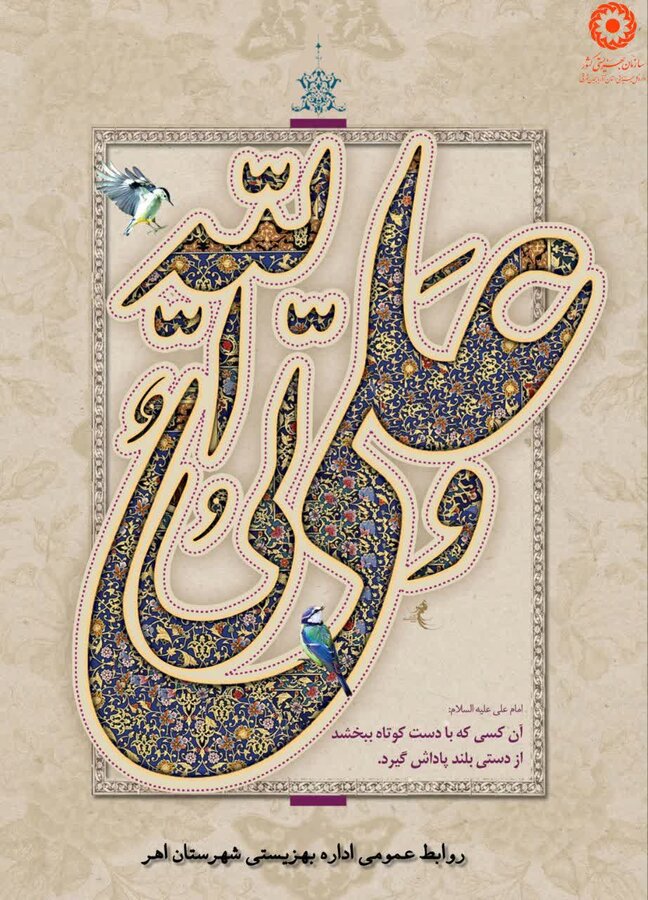 سازمان بهزیستی کشور
علی ولی الله
امام علی علیه السلام:
آن کسی که با دست کوتاه ببخشد
از دستی بلند پاداش گیرد.
روابط عمومی اداره بهزیستی شهرستان اهر